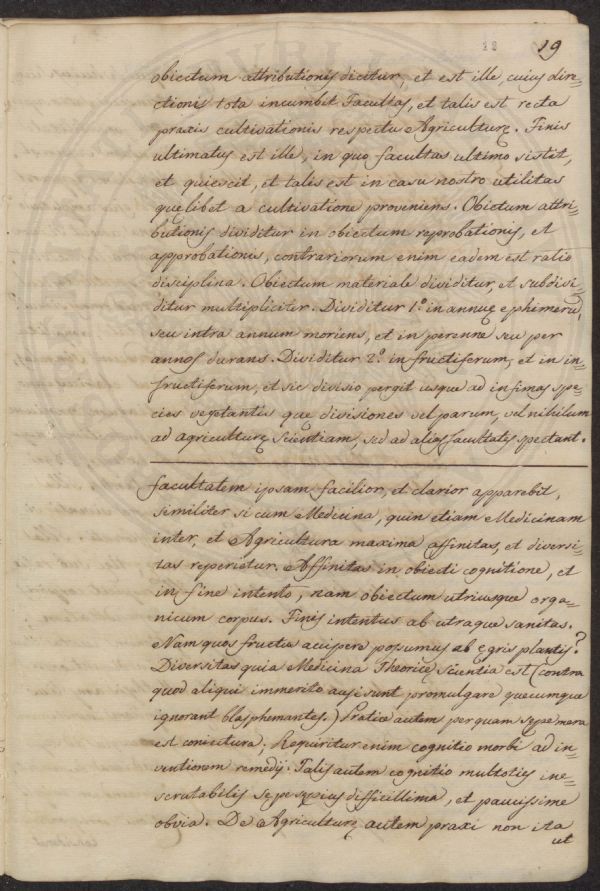 19
obiectum attributionis dicitur, et est ille, cuius dire=
ctionis tota incumbit Facultas, et talis est recta
praxis cultivationis respectu Agriculturę. Finis
ultimatus est ille, in quo facultas ultimo sistit,
et quiescit, et talis est in casu nostro utilitas
quęlibet a cultivatione proveniens. Obiectum attri=
butionis dividitur in obiectum reprobationis, et
approbationis, contrariorum enim eadem est ratio
disciplina. Obiectum materiale dividitur, et subdivi=
ditur multipliciter. Dividitur 1.º in annuę ephimerũ,
seu intra annum moriens, et in perenne seu per
annos durans. Dividitur 2.º in fructiferum, et in in=
fructiferum, et sic divisio pergit usque ad infimas spe=
cies vegetantis que divisiones vel parum, vel nihilum
ad agriculturę scientiam, sed ad alias facultates spectant.
facultatem ipsam facilior, et clarior apparebit,
similiter si cum Medicina, quin etiam Medicinam
inter, et Agricultura maxima affinitas, et diversi=
tas reperietur. Affinitas in obiecti cognitione, et
in fine intento, nam obiectum utriusque orga=
nicum corpus. Finis intentus ab utraque sanitas.
Nam quos fructus accipere possumus ab ęgris plantis?
Diversitas quia Medicina Theoricę scientia est (contra
quod aliqui immerito ausi sunt promulgare quęcumque
ignorant blasphemantes.) Pratice autem perquam sępe mera
est coniectura; Requiritur enim cognitio morbi ad in=
ventionem remedij. Talis autem cognitio multoties ine=
scrutabilis sępe sępius difficillima, et paucissime
obvia. De Agriculturę autem praxi non ita
ut